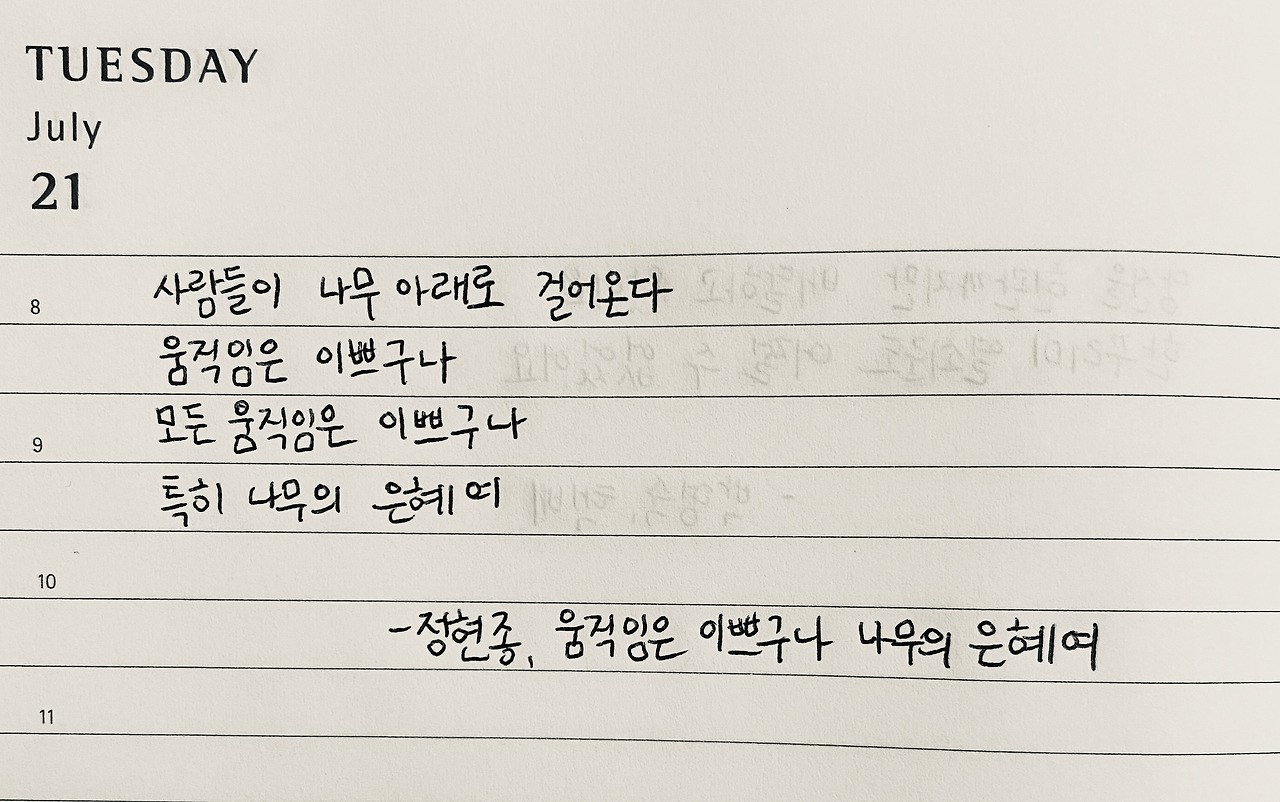 TUESDAY
July
21
8
사람들이 나무 아래로 걸어온다
움직임은 이쁘구나
9
모든 움직임은 이쁘구나
특히 나무의 은혜여
10
-정현종, 움직임은 이쁘구나 나무의 은혜여
11